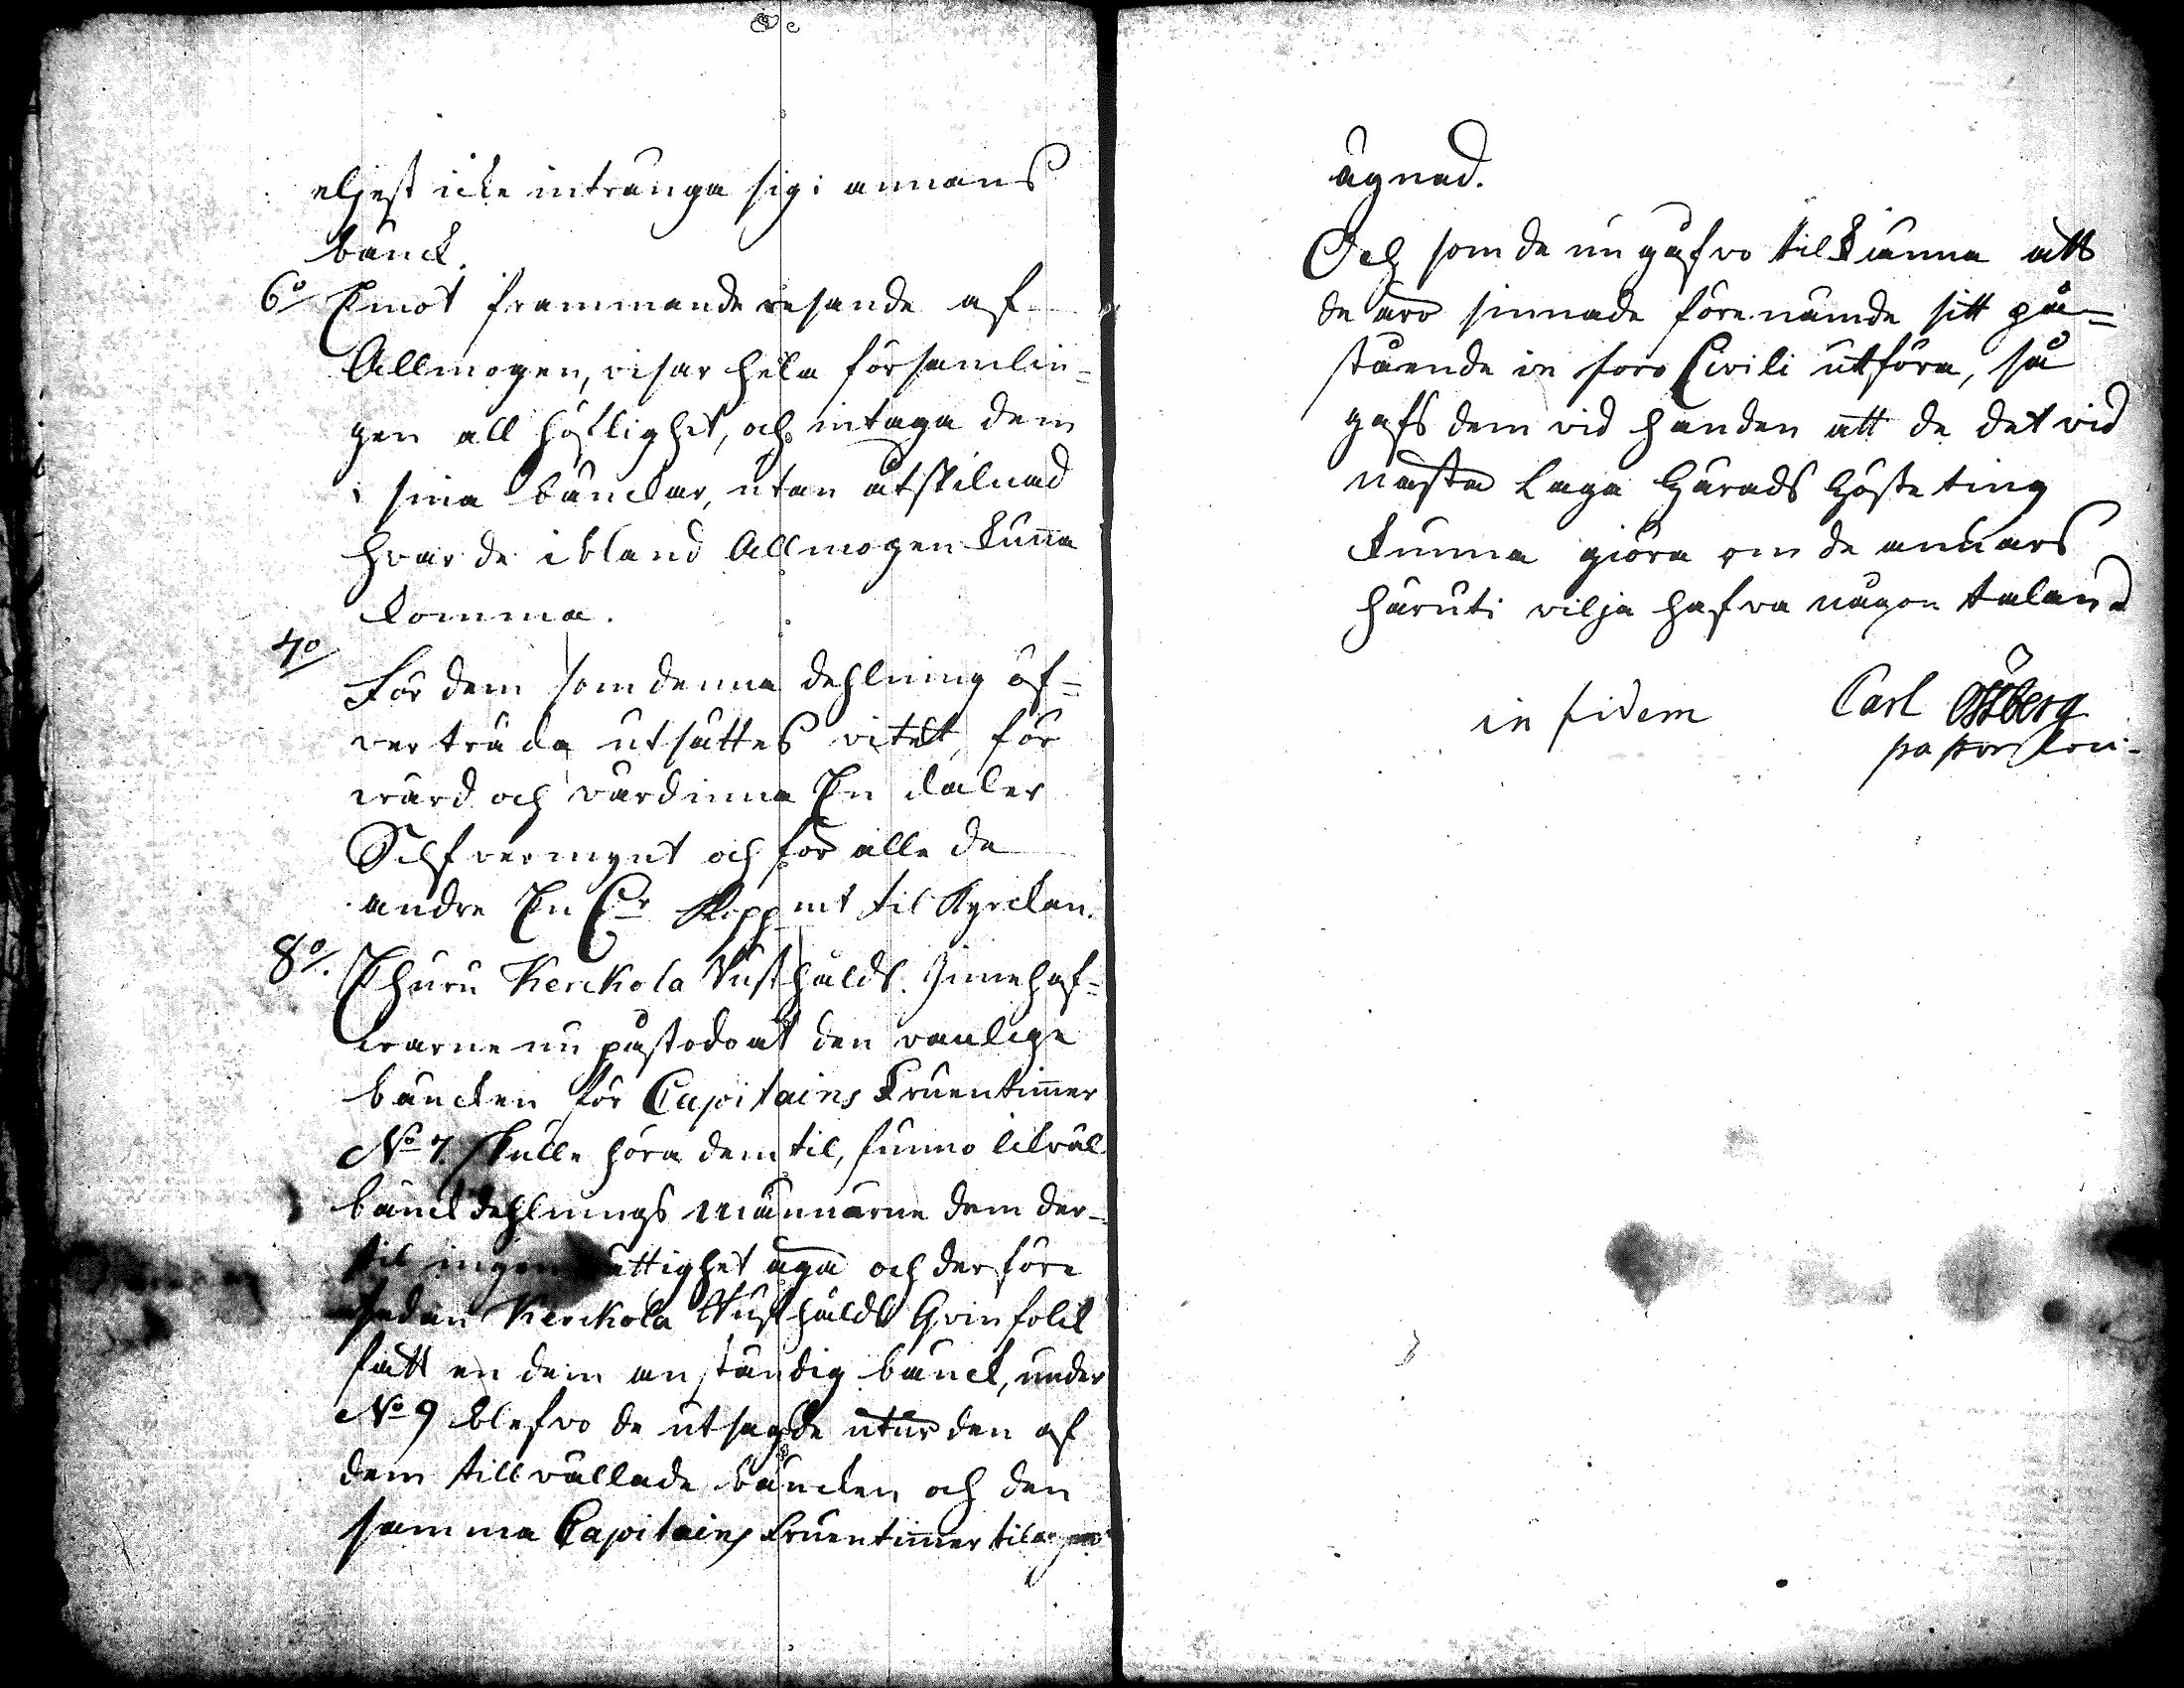 eljest icke intränga sig i annans
bänck.
6o/ Emot främmande resande af
Allmogen, visar hela församlin=
gen all höflighet, och intaga dem
i sina bänckar, utan åtskilnad
hvar de ibland Allmogen kunna
komma.
7o/
För dem som denna dehlning öf=
verträda utsättes vitet, för
wärd och värdinna En daler
Silfvermynt och för alle de
andre En Dr Koppmt til Kyrckan.
8o/. Ehuru Kerckola Rusthålds. Innehaf=
warne nu påstodo at den vanlige
bäncken för Capitains Fruentimer
No 7. skulle höra dem til, funno likväl
bänckdehlnings männerne dem der=
til ingen rättighet äga och derföre
sedan Kerckola Rusthålds Qvinfolck
fått en dem anständig bänck, under
No 9 blefvo de utsagde utur den af
dem tillvällade bäncken och den
samma Capitains Fruentimer til
ägnad.
Och som de nu gåfvo tilkänna att
de äro sinnade förenämde sitt på=
stående in foro Civili utföra, så
gafs dem vid handen att de det vid
nästa Laga Härads Höste ting
kunna giöra om de annars
häruti vilja hafva någon talan
in fidem Carl Ostberg
pastor